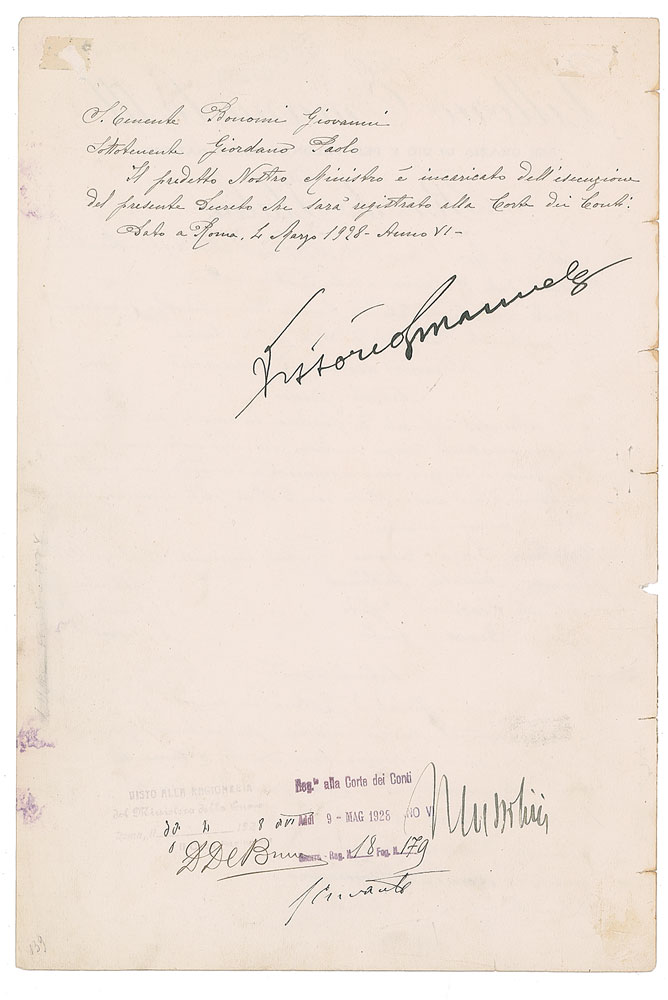 S. Tenente Bonomi Giovanni
Sottotenente Giordano Paolo
Il predetto Nostro Ministro è incaricato dell'esecuzione
del presente Decreto che sarà registrato alla Corte dei Conti.
Dato a Roma, 4 Marzo 1928 - Anno VI -
Vittorio Emanuele
VISTO ALLA RAGIONERIA
del Ministero della Guerra
Roma, li
Reg.to alla Corte dei Conti
Addì 9 - MAG 1928
Guerra - Reg. N. 18 Fog. N. 179
Mussolini
139